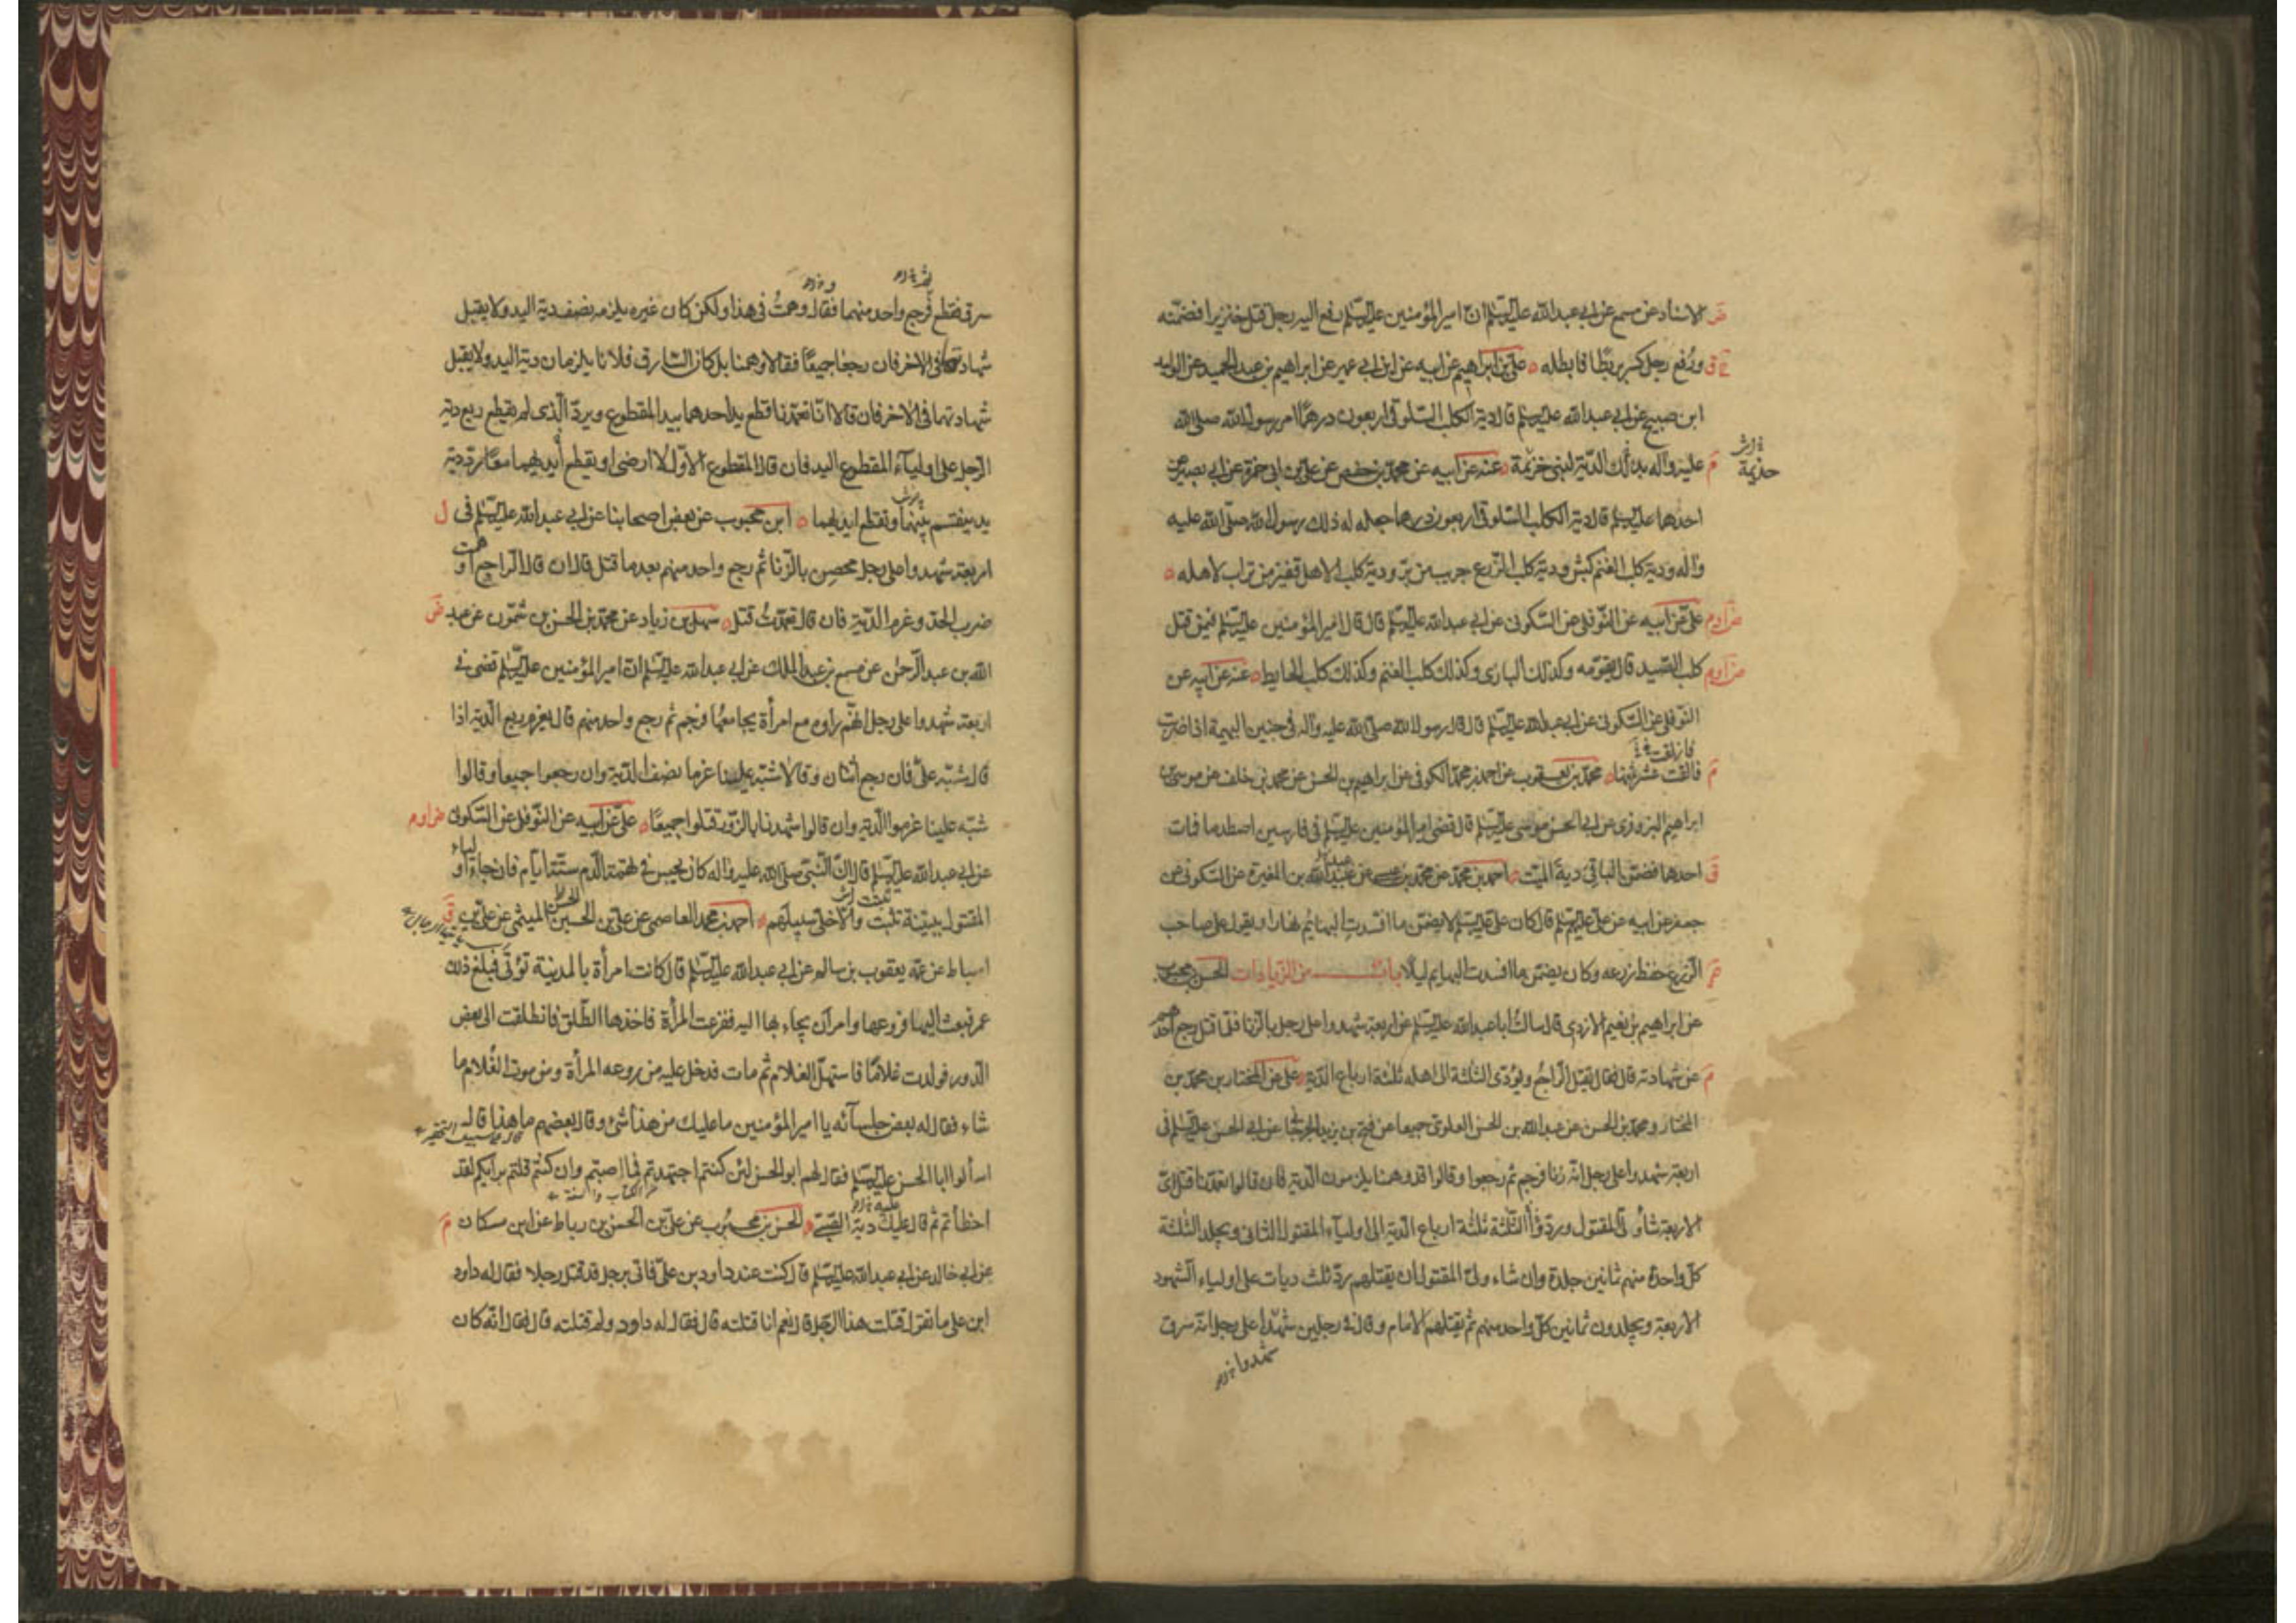 الاسناد عن مسمع عن ابي عبدالله عليه السلام ان امير المؤمنين عليه السلام رفع اليه رجل قتل خنزيرا فضمنه
ورفع رجل كسر بربطا فابطله علي بن ابراهيم عن ابيه عن ابن ابي عمير عن ابراهيم بن عبد الحميد عن الوليد
ابن صبيح عن ابي عبدالله عليه السلام قال دية الكلب السلوقي اربعون درهما امر رسول الله صلى الله
عليه وآله بذلك الدية لبني خزيمة عنه عن ابيه عن محمد بن حفص عن علي بن ابي حمزة عن ابي بصير عن
حذيمة
احدهما عليه السلام قال دية الكلب السلوقي اربعون درهما جعله له ذلك رسول الله صلى الله عليه
وآله ودية كلب الغنم كبش ودية كلب الزرع جريب من بر ودية كلب الاهل قفيز من تراب لاهله
علي عن ابيه عن النوفلي عن السكوني عن ابي عبدالله عليه السلام قال قال امير المؤمنين عليه السلام فيمن قتل
كلب الصيد قال يقومه وكذلك البازى وكذلك كلب الغنم وكذلك كلب الحايط عنه عن ابيه عن
النوفلي عن السكوني عن ابي عبدالله عليه السلام قال قال رسول الله صلى الله عليه وآله في جنين البهيمة اذا ضربت
فازلقت
فالقت عشر ثمنها محمد بن يعقوب عن احمد بن محمد الكوفي عن ابراهيم بن الحسن عن محمد بن خلف عن موسى بن
ابراهيم البزوزى عن ابي الحسن موسى عليه السلام قال قضى امير المؤمنين عليه السلام في فارسين اصطدما فمات
احدهما فضمن الباقي دية الميت احمد بن محمد عن محمد بن عن عبدالله بن المغيرة عن السكوني عن
جعفر عن ابيه عن علي عليهم السلام قال كان علي عليه السلام لا يضمن ما افسدت البهايم نهارا ويقول على صاحب
الزرع حفظ زرعه وكان يضمن ما افسدت البهايم ليلا باب من الزيادات الحسن بن محبوب
عن ابراهيم بن نعيم الازدى قال سالت اباعبدالله عليه السلام عن اربعة شهدوا على رجل بالزنا فلما قتل رجع احدهم
عن شهادته قال فقال يقتل الراجع ويؤدى الثلثة الى اهله ثلثة ارباع الدية علي عن المختار بن محمد بن
المختار ومحمد بن الحسن عن عبدالله بن الحسن العلوى جميعا عن فتح بن يزيد الجرجاني عن ابي الحسن عليه السلام في
اربعة شهدوا على رجل انه زنا فرجم ثم رجعوا وقالوا قد وهمنا يلزمون الدية فان قالوا تعمدنا قتل اى
الاربعة شاء ولي المقتول ورد الثلثة ثلثة ارباع الدية الى اولياء المقتول الثاني ويجلد الثلثة
كل واحدة منهم ثمانين جلدة وان شاء ولي المقتول ان يقتلهم رد ثلث ديات على اولياء الشهود
الاربعة ويجلدون ثمانين كل واحد منهم ثم يقتلهم الامام وقال في رجلين شهدا على رجل انه سرق
شهدوا
سرق فقطع فرجع واحد منهما فقال وهمت في هذا ولكن كان غيره يلزمه نصف دية اليد ولا يقبل
شهادته في الاخر فان رجعا جميعا فقالا وهمنا بل كان السارق فلانا يلزمان دية اليد ولا يقبل
شهادتهما في الاخر فان قالا انا تعمدنا قطع يد احدهما بيد المقطوع ويرد الذى لم يقطع ربع دية
الرجل على اولياء المقطوع اليد فان قال المقطوع الاول لا ارضى او يقطع ايديهما معا رد دية
يد يقتسم بينهما وتقطع ايديهما ابن محبوب عن بعض اصحابنا عن ابي عبدالله عليه السلام في
اربعة شهدوا على رجل محصن بالزنا ثم رجع واحد منهم بعد ما قتل قال ان قال الراجع اوهمت
ضرب الحد وغرم الدية فان قال تعمدت قتل سهل بن زياد عن محمد بن الحسن بن شمون عن عبد
الله بن عبد الرحمن عن مسمع بن عبد الملك عن ابي عبدالله عليه السلام ان امير المؤمنين عليه السلام قضى في
اربعة شهدوا على رجل انهم راوه مع امرأة يجامعها فرجم ثم رجع واحد منهم قال يغرم ربع الدية اذا
قال شبه علي فان رجع اثنان وقالا شبه علينا غرما نصف الدية وان رجعوا جميعا وقالوا
شبه علينا غرموا الدية وان قالوا شهدنا بالزور قتلوا جميعا علي عن ابيه عن النوفلي عن السكوني
عن ابي عبدالله عليه السلام قال ان النبي صلى الله عليه وآله كان يحبس في تهمة الدم ستة ايام فان جاء اولياء
المقتول ببينة تثبت والا خلى سبيلهم احمد بن محمد العاصمي عن علي بن الحسين الميثمي عن علي بن
اسباط عن عمه يعقوب بن سالم عن ابي عبدالله عليه السلام قال كانت امرأة بالمدينة تؤتى فبلغ ذلك
عمر فبعث اليها فروعها وامر ان يجاء بها اليه ففزعت المرأة فاخذها الطلق فانطلقت الى بعض
الدور فولدت غلاما فاستهل الغلام ثم مات فدخل عليه من روعه المرأة ومن موت الغلام ما
شاء فقال له بعض جلسائه يا امير المؤمنين ما عليك من هذا شئ وقال بعضهم ما هذا قال
اسألوا ابا الحسن عليه السلام فقال لهم ابو الحسن لئن كنتم اجتهدتم فما اصبتم وان كنتم قلتم برايكم لقد
اخطأتم ثم قال عليك دية الصبي الحسن بن محبوب عن علي بن الحسن بن رباط عن ابن مسكان
عن ابي خالد عن ابي عبدالله عليه السلام قال كنت عند داود بن علي فاتى برجل قد قتل رجلا فقال له داود
ابن علي ما تقول قتلت هذا الرجل قال نعم انا قتلته قال فقال له داود ولم قتلته قال فقال انه كان